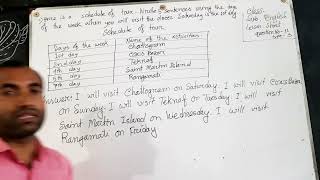 game is a schedule of tour. Write sentences using the days
of the week when you will visit the places. Saturday is the 1st day
Schedule of tour
Class:
Sub: English
Lesson:
Days of the week Name of the activities
1st day Chattogram
2nd day Cox's Bazar
Teknaf
5th day Saint Martin Island
7th day Rangamati
Answer: I will visit Chattogram on Saturday. I will visit Cox's Bazar
on Sunday. I will visit Teknaf on Tuesday. I will visit
Saint Martin Island on Wednesday. I will visit
Rangamati on Friday